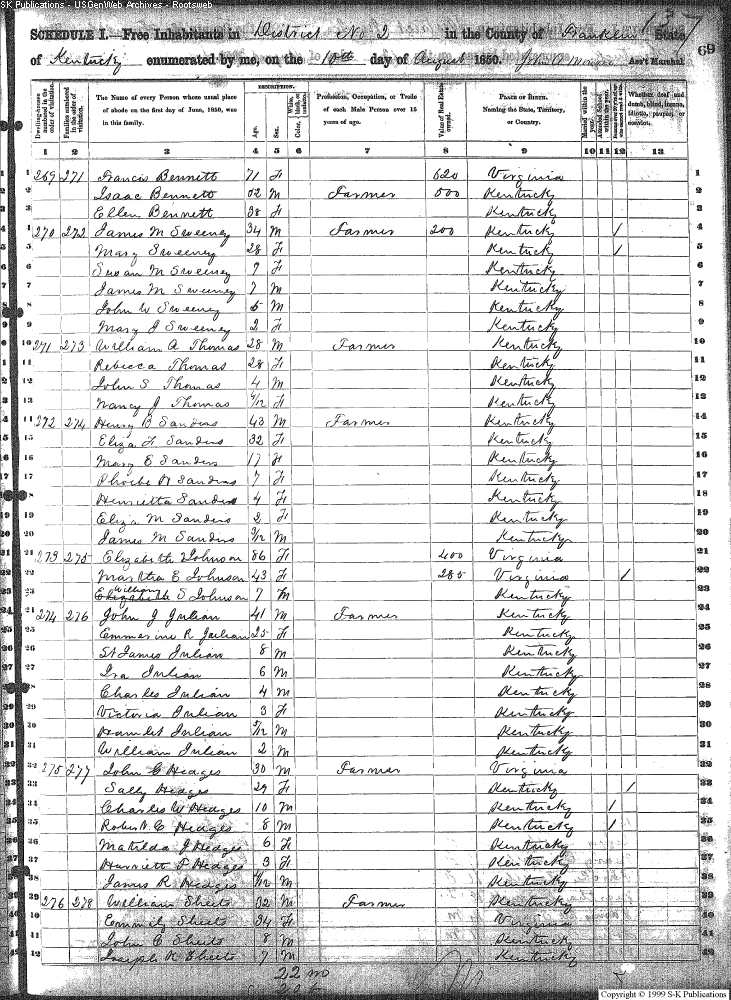 SK Publications - USGenWeb Archives - Rootsweb
137
SCHEDULE I.—Free Inhabitants in District No 2 in the County of Franklin State
of Kentucky enumerated by me, on the 10th day of August 1850. Ass't Marshal. 69
Dwelling-houses numbered in the order of visitation.
Families numbered in the order of visitation.
The Name of every Person whose usual place of abode on the first day of June, 1850, was in this family.
DESCRIPTION.
Age.
Sex.
Color, White, black, or mulatto.
Profession, Occupation, or Trade of each Male Person over 15 years of age.
Value of Real Estate owned.
PLACE OF BIRTH. Naming the State, Territory, or Country.
Married within the year.
Attended School within the year.
Whether deaf and dumb, blind, insane, idiotic, pauper, or convict.
1 2 3 4 5 6 7 8 9 10 11 12 13
1 269 271 Francis Bennett 71 F 620 Virginia 1
2 Isaac Bennett 52 M Farmer 500 Kentucky 2
3 Ellen Bennett 38 F Kentucky 3
4 270 272 James M Sweeney 34 M Farmer 200 Kentucky / 4
5 Mary Sweeney 28 F Kentucky / 5
6 Susan M Sweeney 9 F Kentucky 6
7 James M Sweeney 7 M Kentucky 7
8 John W Sweeney 5 M Kentucky 8
9 Mary J Sweeney 2 F Kentucky 9
10 271 273 William A Thomas 28 M Farmer Kentucky 10
11 Rebecca Thomas 28 F Kentucky 11
12 John S Thomas 4 M Kentucky 12
13 Nancy J Thomas /12 F Kentucky 13
14 272 274 Henry B Sanders 43 M Farmer Kentucky 14
15 Eliza F Sanders 32 F Kentucky 15
16 Mary E Sanders 17 F Kentucky 16
17 Phoebe A Sanders 7 F Kentucky 17
18 Henrietta Sanders 4 F Kentucky 18
19 Eliza M Sanders 2 F Kentucky 19
20 James M Sanders /12 M Kentucky 20
21 273 275 Elizabeth Johnson 86 F 400 Virginia 21
22 Martha E Johnson 43 F 285 Virginia / 22
23 William S Johnson 7 M Kentucky 23
24 274 276 John J Julian 41 M Farmer Kentucky 24
25 Emmerine R Julian 25 F Kentucky 25
26 St James Julian 8 M Kentucky 26
27 Ira Julian 6 M Kentucky 27
28 Charles Julian 4 M Kentucky 28
29 Victoria Julian 3 F Kentucky 29
30 Hamlet Julian /12 M Kentucky 30
31 William Julian 2 M Kentucky 31
32 275 277 John C Hedges 30 M Farmer Virginia 32
33 Sally Hedges 29 F Kentucky / 33
34 Charles W Hedges 10 M Kentucky / 34
35 Robert C Hedges 8 M Kentucky / 35
36 Matilda J Hedges 6 F Kentucky 36
37 Harriett F Hedges 3 F Kentucky 37
38 James R Hedges /12 M Kentucky 38
39 276 278 William Sheets 32 M Farmer Kentucky 39
40 Emmily Sheets 34 F Virginia 40
41 John C Sheets 8 M Kentucky 41
42 Joseph K Sheets 7 M Kentucky 42
22 m
20 f
Copyright © 1999 S-K Publications